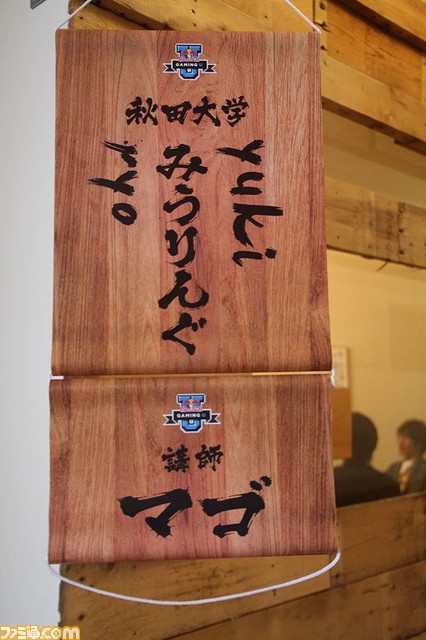 GAMING U
秋田大学
yuki
みうりえぐ
ryo
GAMING U
講師
マゴ
ファミ通.com